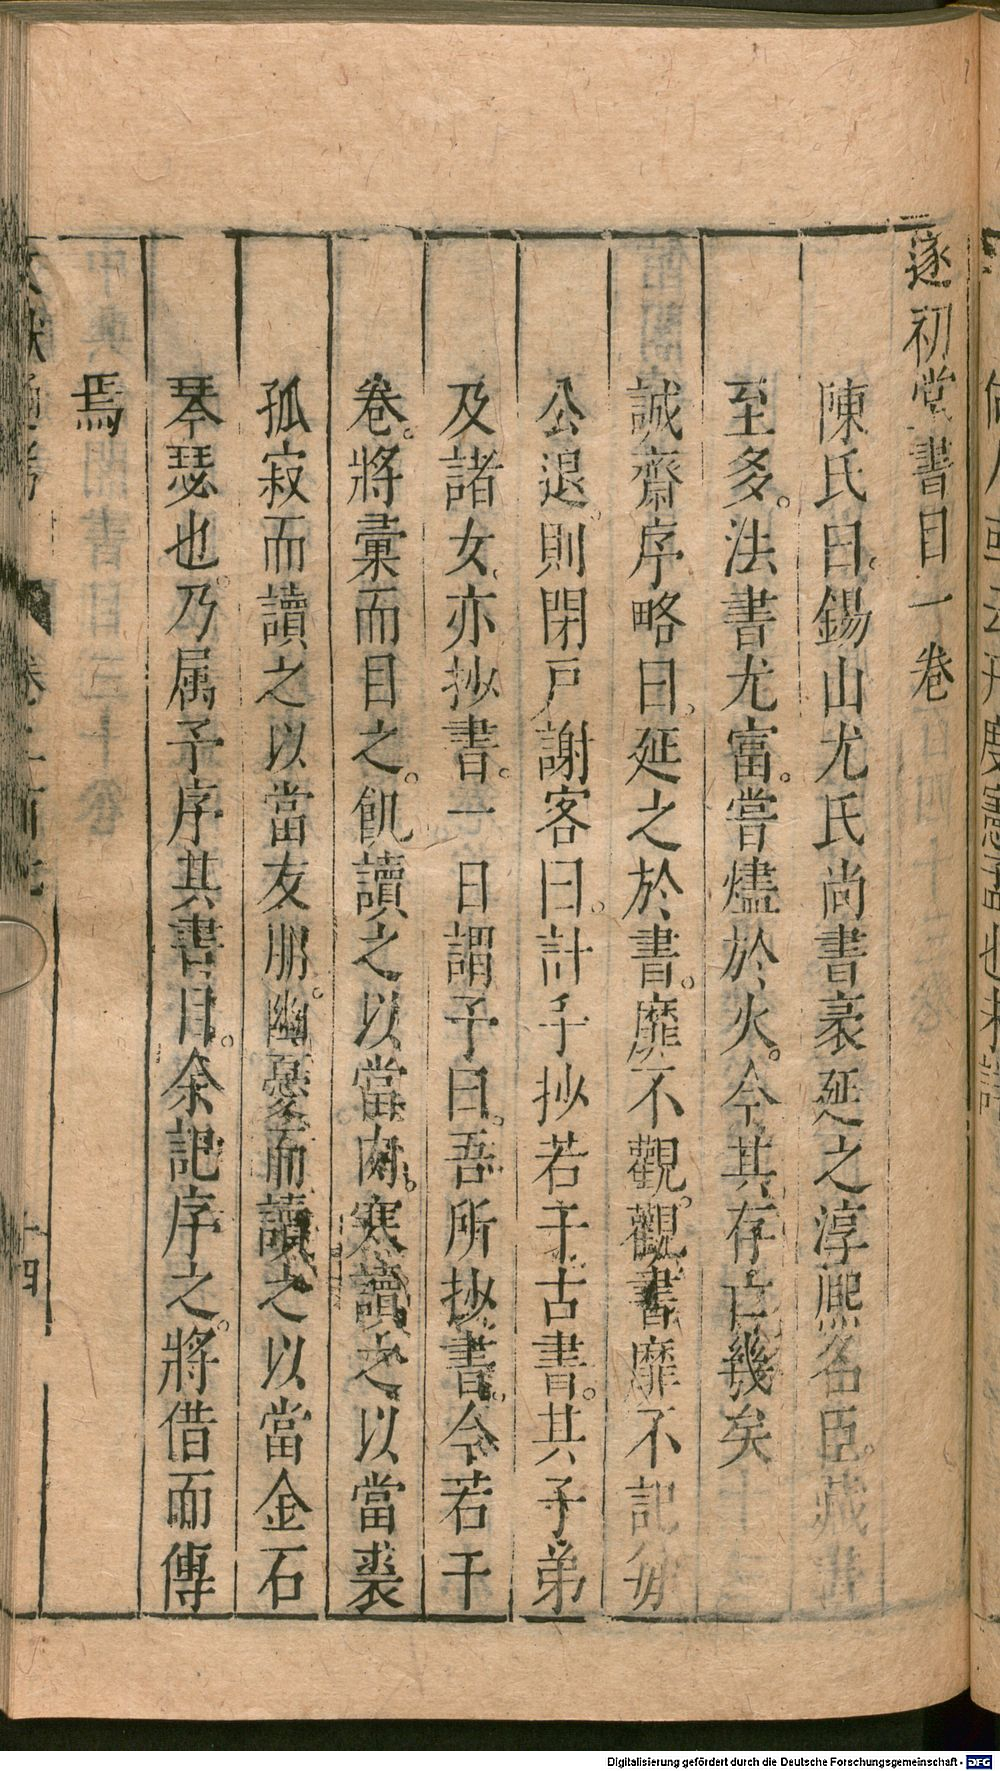 遂初堂書目一卷
陳氏曰。錫山尤氏尚書袤延之淳熙名臣。藏書
至多。法書尤富。嘗燼於火。今其存亡幾矣
誠齋序略曰。延之於書。靡不觀。觀書靡不記。每
公退。則閉戶謝客曰。計手抄若干古書。其子弟
及諸女。亦抄書。一日謂予曰。吾所抄書。今若干
卷。將彙而目之。飢讀之以當肉。寒讀之以當裘
孤寂而讀之以當友朋。幽憂而讀之以當金石
琴瑟也。乃属予序其書目。余記序之。將借而傳
焉
Digitalisierung gefördert durch die Deutsche Forschungsgemeinschaft - DFG